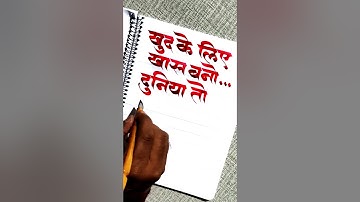 खुद के लिए
खास बनो...
दुनिया तो